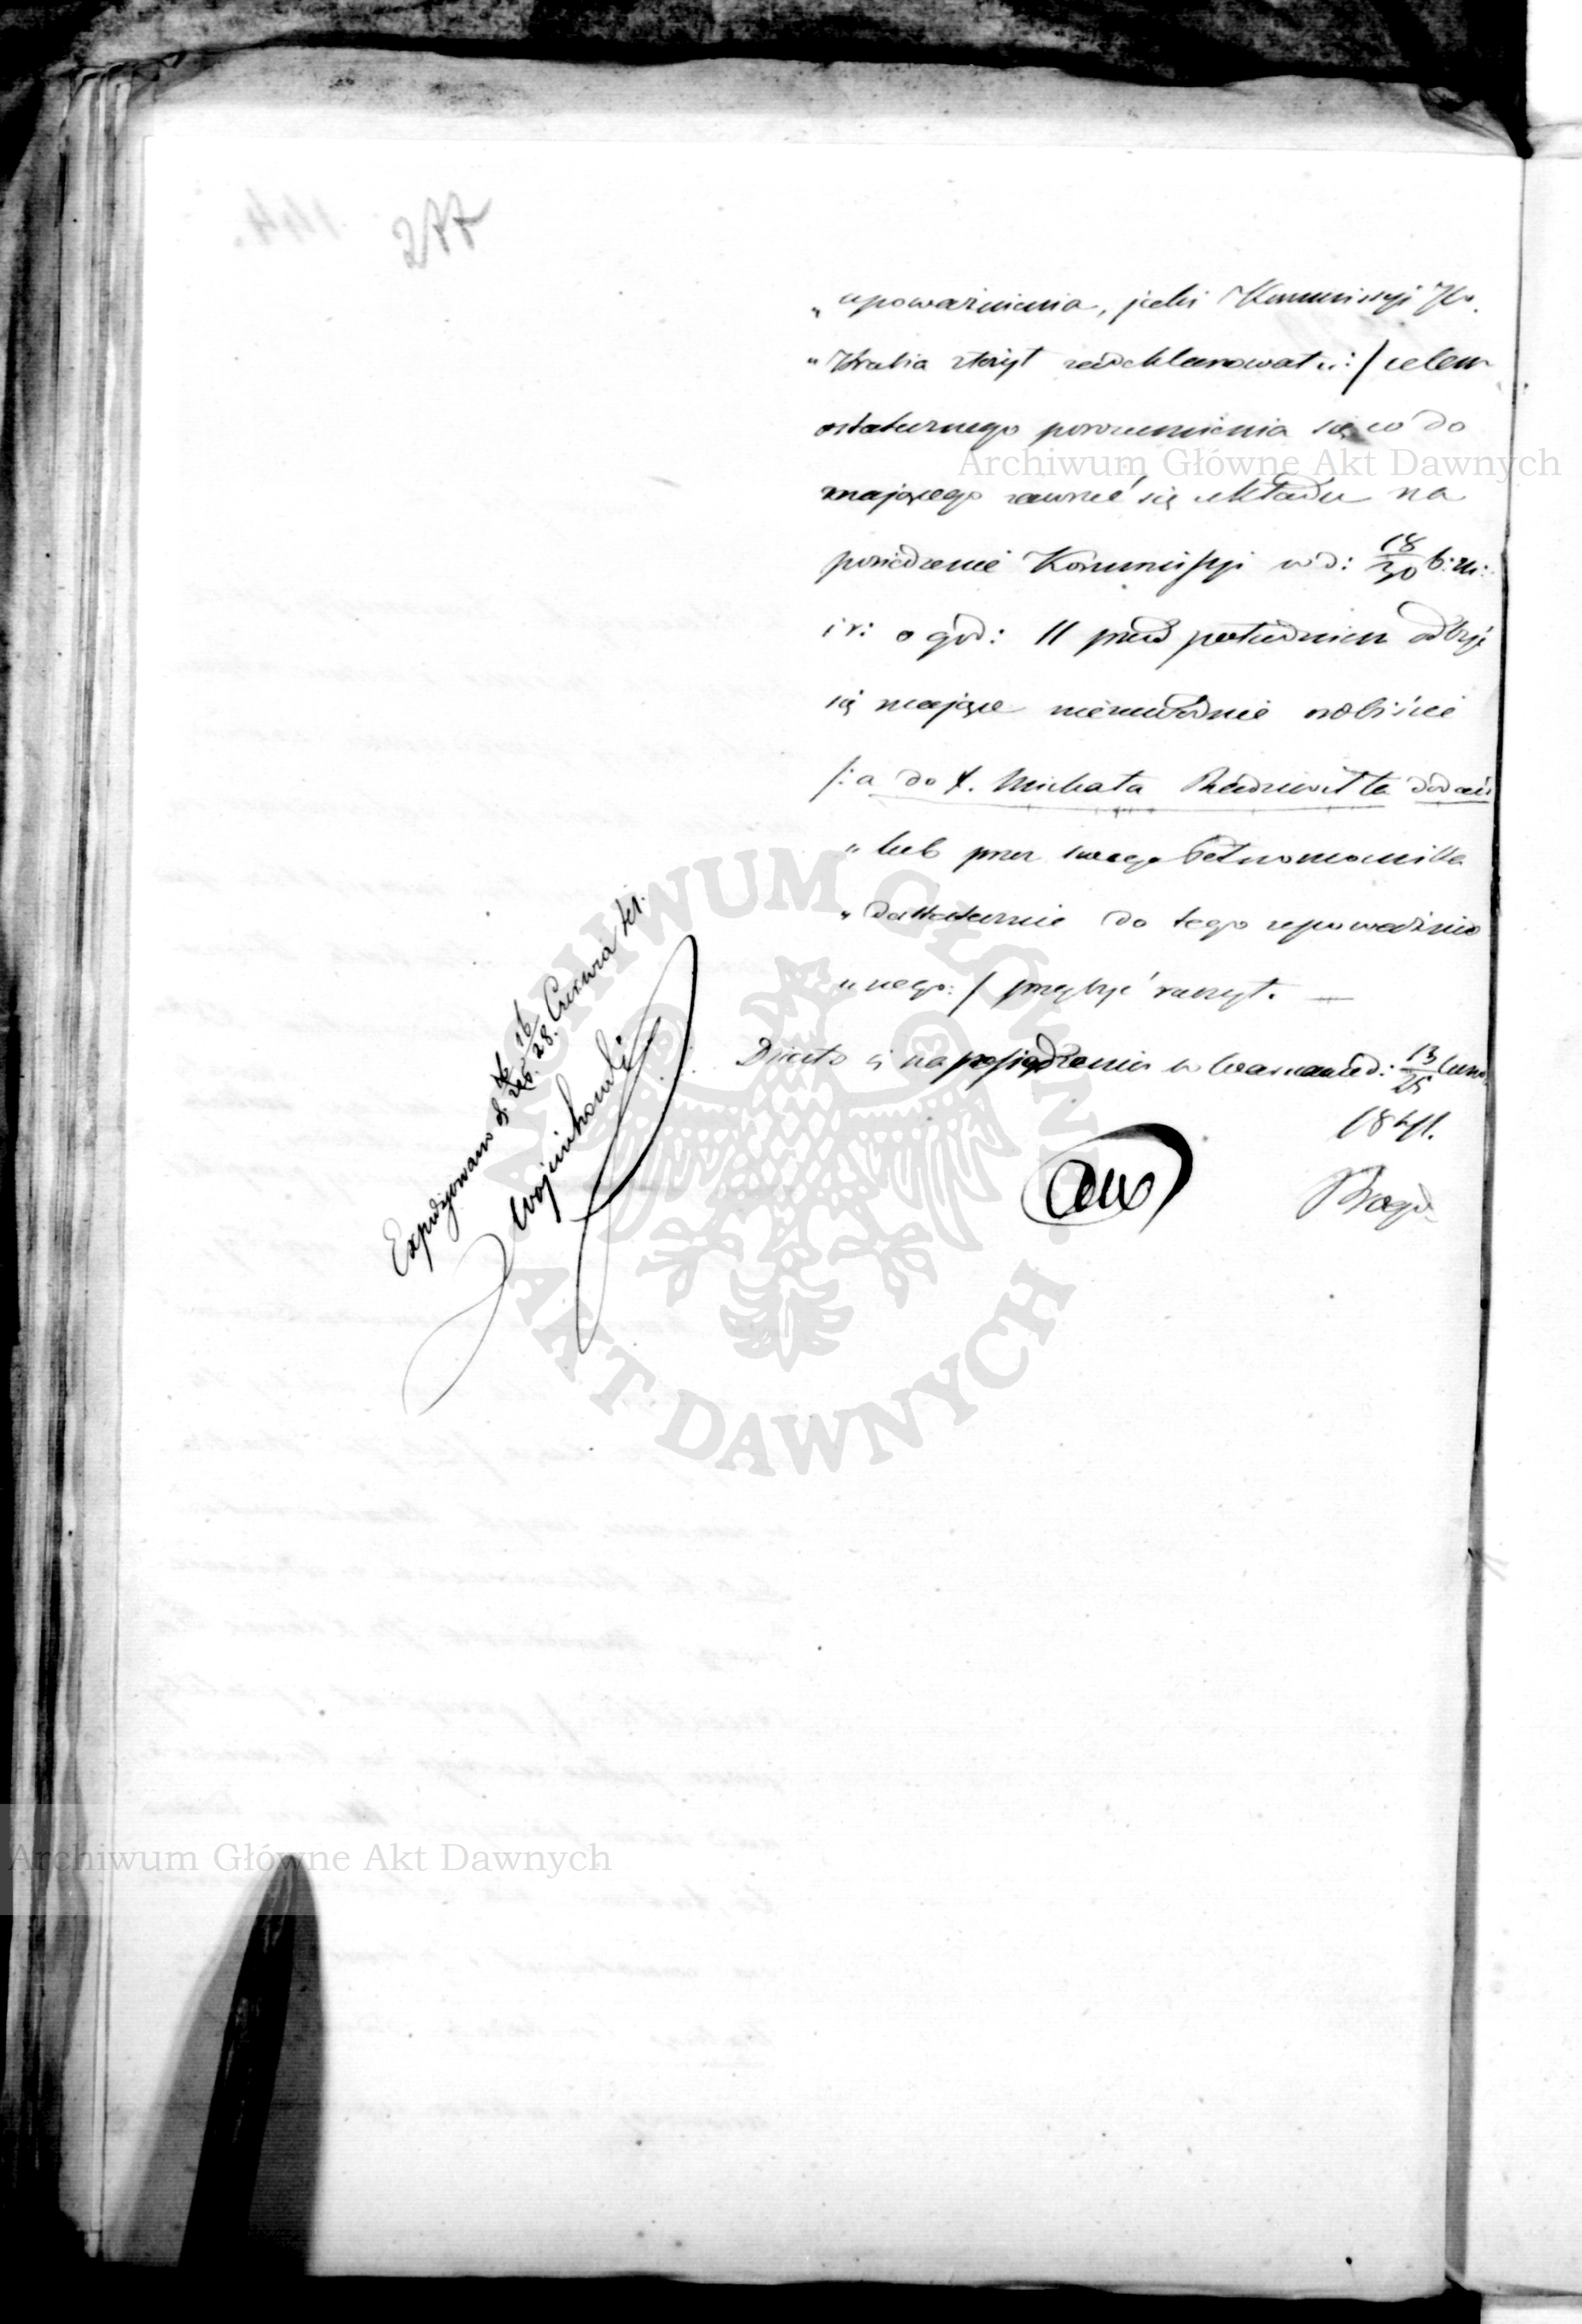 277
„upoważnienia, jaki Kommissyi JW.
„Hrabia złożył zadeklarował :/ celem
ostatecznego porozumienia się co do
mającego zawrzeć się układu na
posiedzenie Kommissyi w d: 18/30 b: m:
i r: o god: 11 przed południem odbyć
się mające niezawodnie osobiście
/: a do X. Michała Radziwiłła dodać
„lub przez swego Pełnomocnika
„dostatecznie do tego upoważnio
„nego: / przybyć raczył. —
Działo się na posiedzeniu w Warszawie d: 13/25 Czerw.
1841.
Expedyowano d. 16/28. Czerwca
Wojcichowski
Archiwum Główne Akt Dawnych
ARCHIWUM GŁÓWNE AKT DAWNYCH
Archiwum Główne Akt Dawnych